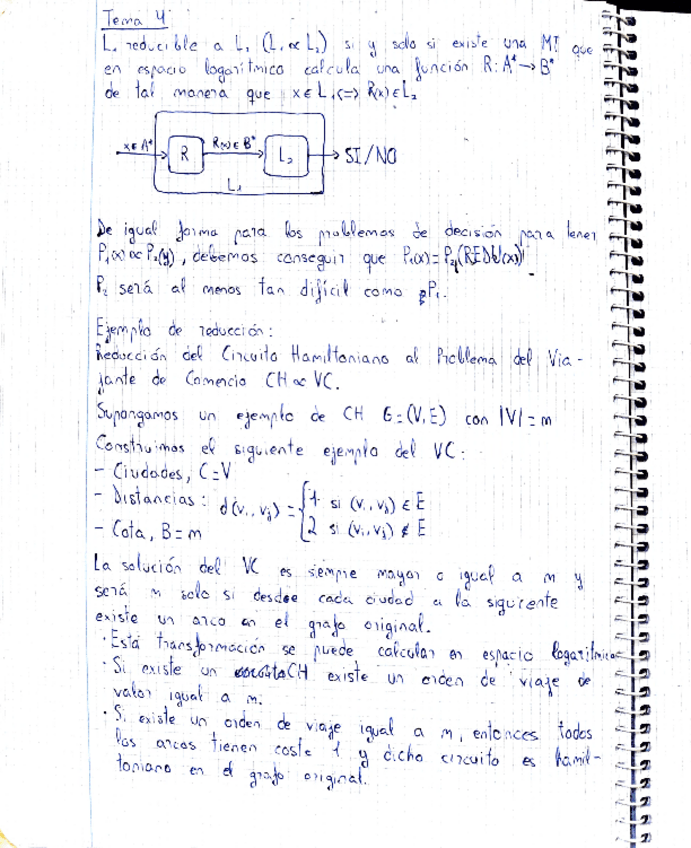 Tema 4
L₁ reducible a L₂ (L₁ ∝ L₂) si y solo si existe una MT que
en espacio logarítmico calcula una función R: A* → B*
de tal manera que x ∈ L₁ <=> R(x) ∈ L₂
x ∈ A* R R(x) ∈ B* L₂ SI/NO
L₁
De igual forma para los problemas de decisión para tener
P₁(x) ∝ P₂(y), debemos conseguir que P₁(x) = P₂(REDU(x))
P₂ será al menos tan difícil como P₁.
Ejemplo de reducción:
Reducción del Circuito Hamiltoniano al Problema del Via-
jante de Comercio CH ∝ VC.
Supongamos un ejemplo de CH G = (V, E) con |V| = m
Construimos el siguiente ejemplo del VC:
- Ciudades, C = V
- Distancias: d(vᵢ, vⱼ) = { 1 si (vᵢ, vⱼ) ∈ E
2 si (vᵢ, vⱼ) ∉ E
- Cota, B = m
La solución del VC es siempre mayor o igual a m y
será m solo si desde cada ciudad a la siguiente
existe un arco en el grafo original.
· Está transformación se puede calcular en espacio logarítmico
· Si existe un CH existe un orden de viaje de
valor igual a m.
· Si existe un orden de viaje igual a m, entonces todos
los arcos tienen coste 1 y dicho circuito es hamil-
toniano en el grafo original.